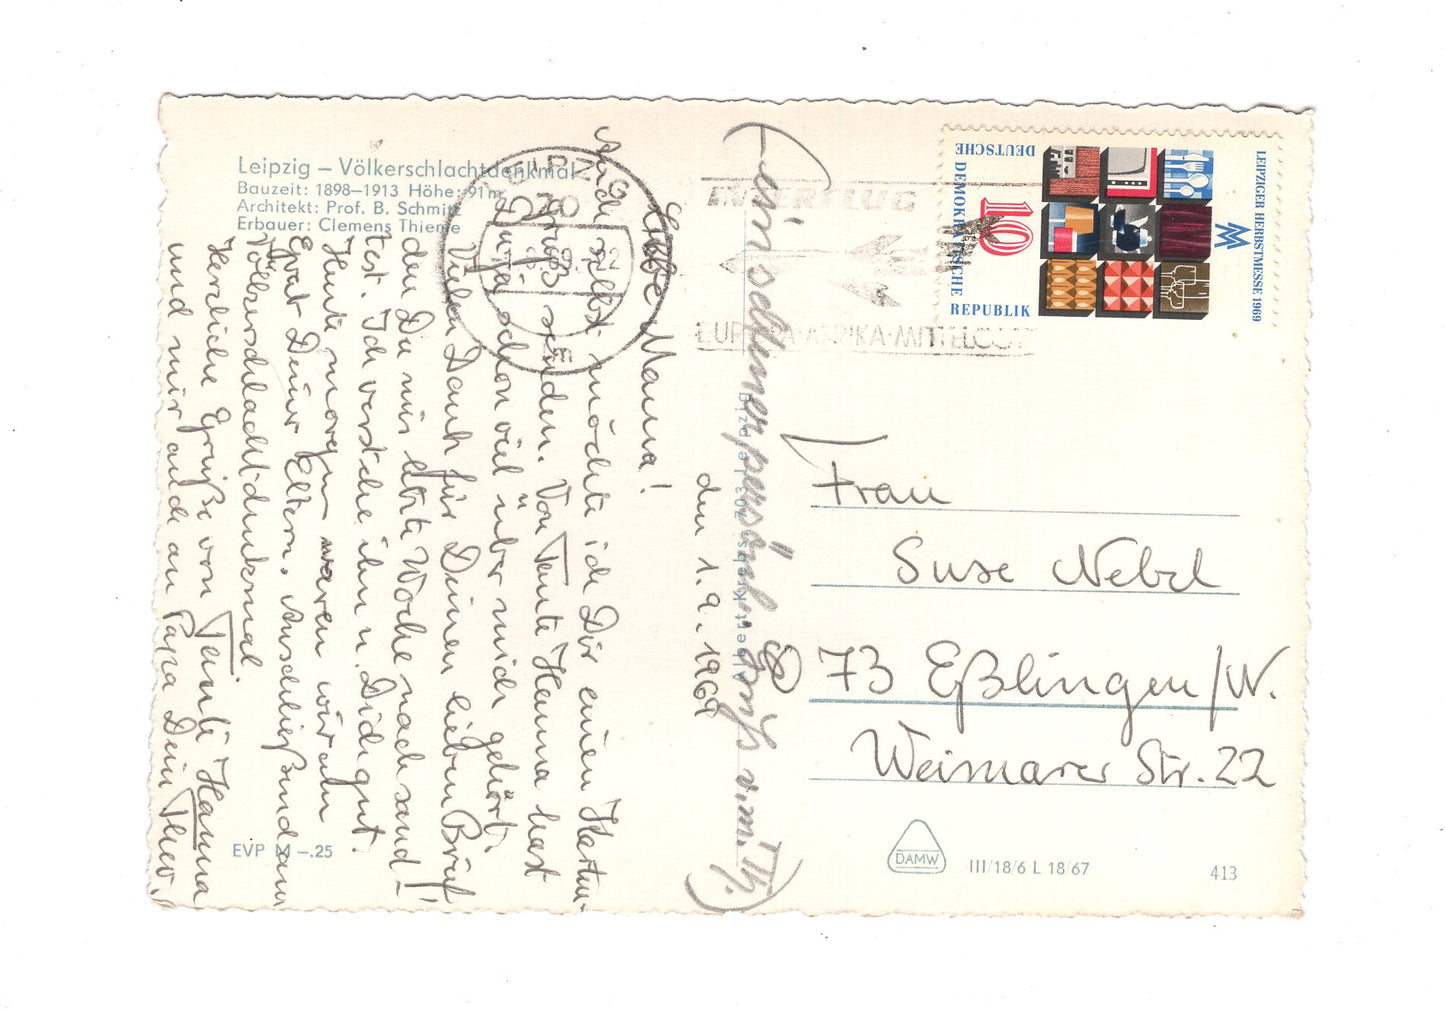 Leipzig – Völkerschlachtdenkmal
Bauzeit: 1898–1913 Höhe: 91 m
Architekt: Prof. B. Schmitz
Erbauer: Clemens Thieme
den 1.9.1969
Liebe Mama!
Auch selbst möchte ich Dir einen Karten-
gruß senden. Von Tante Hanna hast
Du ja schon viel über mich gehört.
Vielen Dank für Deinen lieben Brief,
den Du mir letzte Woche nachsandtest.
Ich verstehe ihn u. Dich gut.
Heute morgen waren wir am
Grab Deiner Eltern. Anschließend am
Völkerschlachtdenkmal.
Herzliche Grüße von Tante Hanna
und mir auch an Papa Dein Theo.
EVP M –.25
Albert Krebs, 703 Leipzig
INTERFLUG
EUROPA·AFRIKA·MITTELOST
LEIPZIG
DEUTSCHE
DEMOKRATISCHE
REPUBLIK
10
LEIPZIGER HERBSTMESSE 1969
MM
Frau
Suse Nebel
73 Eßlingen/W.
Weimarer Str. 22
DAMW
III/18/6 L 18/67
413